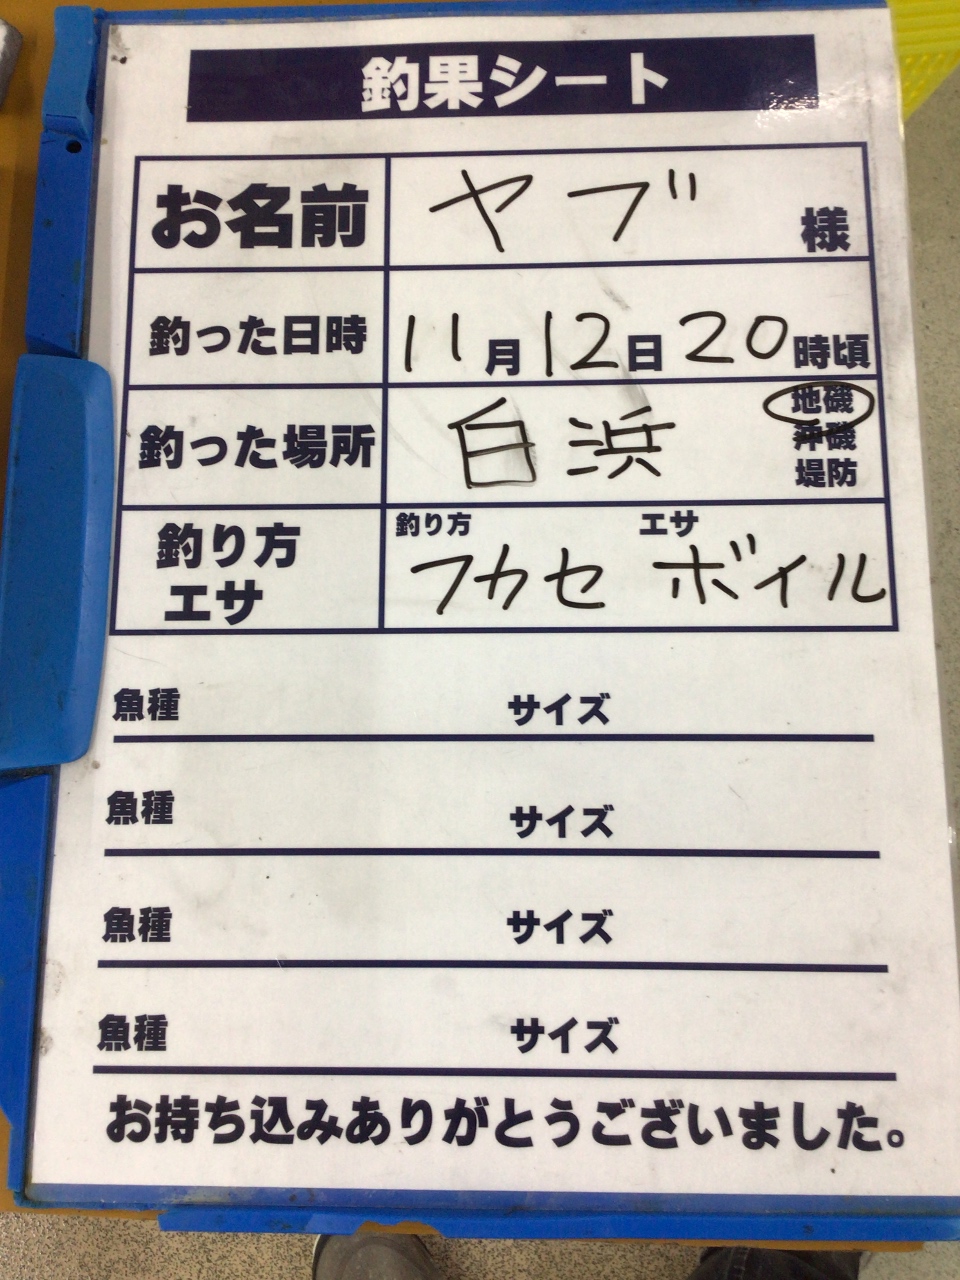 釣果シート
お名前 ヤブ 様
釣った日時 11月12日20時頃
釣った場所 白浜 地磯
沖磯
堤防
釣り方 エサ
釣り方
エサ
フカセ ボイル
魚種 サイズ
魚種 サイズ
魚種 サイズ
魚種 サイズ
お持ち込みありがとうございました。